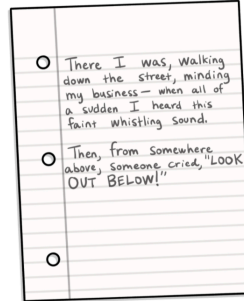 There I was, walking
down the street, minding
my business — when all of
a sudden I heard this
faint whistling sound.
Then, from somewhere
above, someone cried, "LOOK
OUT BELOW!"